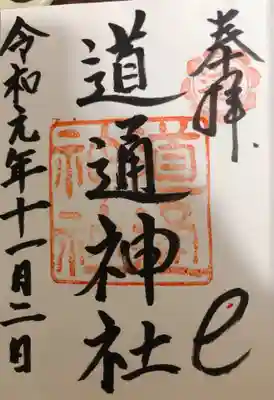 奉拝
道通神社
令和元年十一月二日